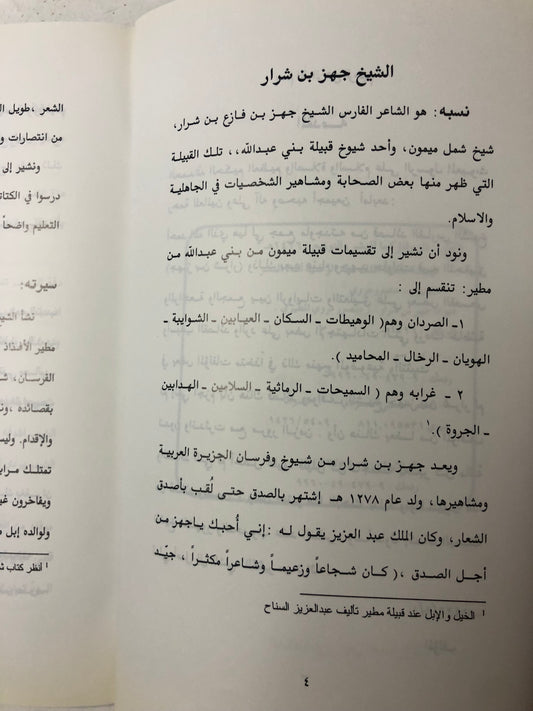 الشيخ جهز بن شرار
نسبه: هو الشاعر الفارس الشيخ جهز بن فازع بن شرار،
شيخ شمل ميمون، وأحد شيوخ قبيلة بني عبدالله،، تلك القبيلة
التي ظهر منها بعض الصحابة ومشاهير الشخصيات في الجاهلية
والاسلام.
ونود أن نشير إلى تقسيمات قبيلة ميمون من بني عبدالله من
مطير: تنقسم إلى :
١ـ الصردان وهم( الوهيطات ـ السكان ـ العيابين ـ الشوايبة ـ
الهويان ـ الرخال ـ المحاميد ).
٢ ـ غرابه وهم ( السميحات ـ الرماثية ـ السلابين ـ الهدابين
ـ الجروة ).١
ويعد جهز بن شرار من شيوخ وفرسان الجزيرة العربية
ومشاهيرها، ولد عام ١٢٧٨ هـ إشتهر بالصدق حتى لُقب بأصدق
الشعار، وكان الملك عبد العزيز يقول له :إني أُحبك ياجهز من
أجل الصدق ،( كـان شـجاعاً وزعيمـاً وشاعراً مكثـراً ، جيّـد
١ الخيل و الإبل عند قبيلة مطير تأليف عبدالعزيز السناح
٤
الشعر ،طويل
من انتصارات و
ونشير إلى
درسوا في
التعليم واضحاً
سيرته:
نشأ
مطير الأفذاذ
الفرسان،
بقصائده
والإقدام.
تمتلك
ويفاخرون
ولوالده إبل
١ أنظر كتاب